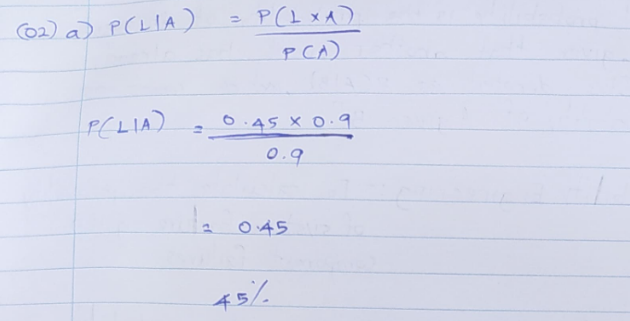 (02) a) P(L|A) = P(L x A)
P(A)
P(L|A) = 0.45 x 0.9
0.9
= 0.45
45%